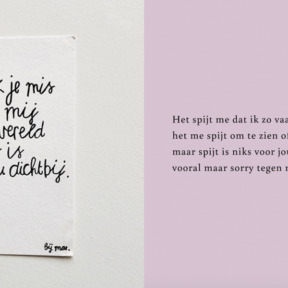 je mis
mij
wereld
is
dichtbij.
bij mar.
Het spijt me dat ik zo
het me spijt om te zien
maar spijt is niks voor
vooral maar sorry tegen